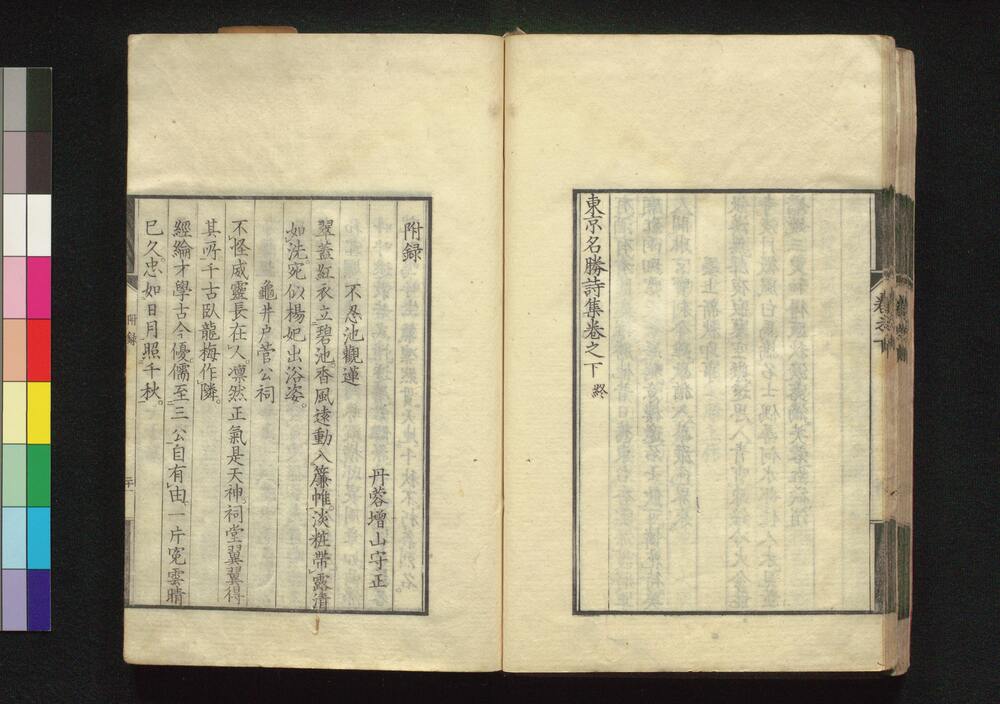 東京名勝詩集卷之下 終
附録
不忍池觀蓮
丹蓉增山守正
翠蓋紅衣立碧池香風遠動入簾帷淡粧帶露清
如洗宛似楊妃出浴姿
龜井戸菅公祠
不怪威靈長在人凛然正氣是天神祠堂翼翼得
其所千古臥龍梅作隣
經綸才學古今優儒至三公自有由一片寃雲晴
已久忠如日月照千秋
附録